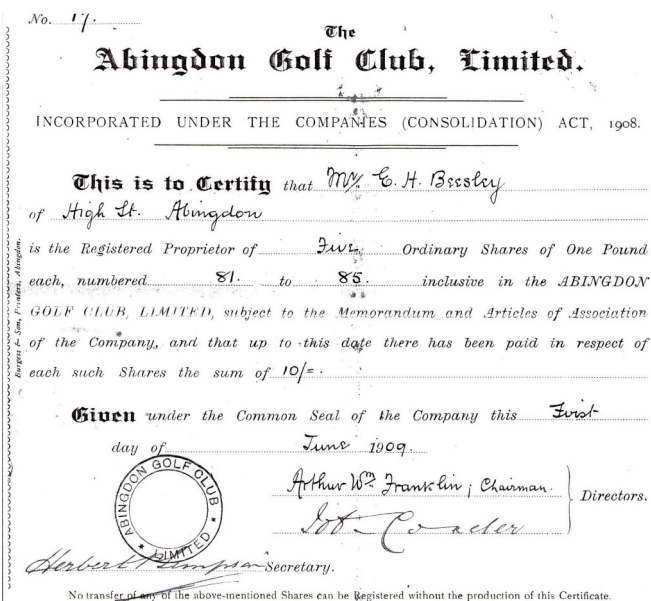 No. 17.
The
Abingdon Golf Club, Limited.
INCORPORATED UNDER THE COMPANIES (CONSOLIDATION) ACT, 1908.
This is to Certify that Mr. E. H. Beesley
of High St. Abingdon
is the Registered Proprietor of Five Ordinary Shares of One Pound
each, numbered 81. to 85. inclusive in the ABINGDON
GOLF CLUB, LIMITED, subject to the Memorandum and Articles of Association
of the Company, and that up to this date there has been paid in respect of
each such Shares the sum of 10/=.
Given under the Common Seal of the Company this First
day of June 1909.
Arthur Wm. Franklin, Chairman.
Directors.
ABINGDON GOLF CLUB
* LIMITED *
Herbert Secretary.
No transfer of any of the above-mentioned Shares can be Registered without the production of this Certificate.
Burgess & Son, Printers, Abingdon.